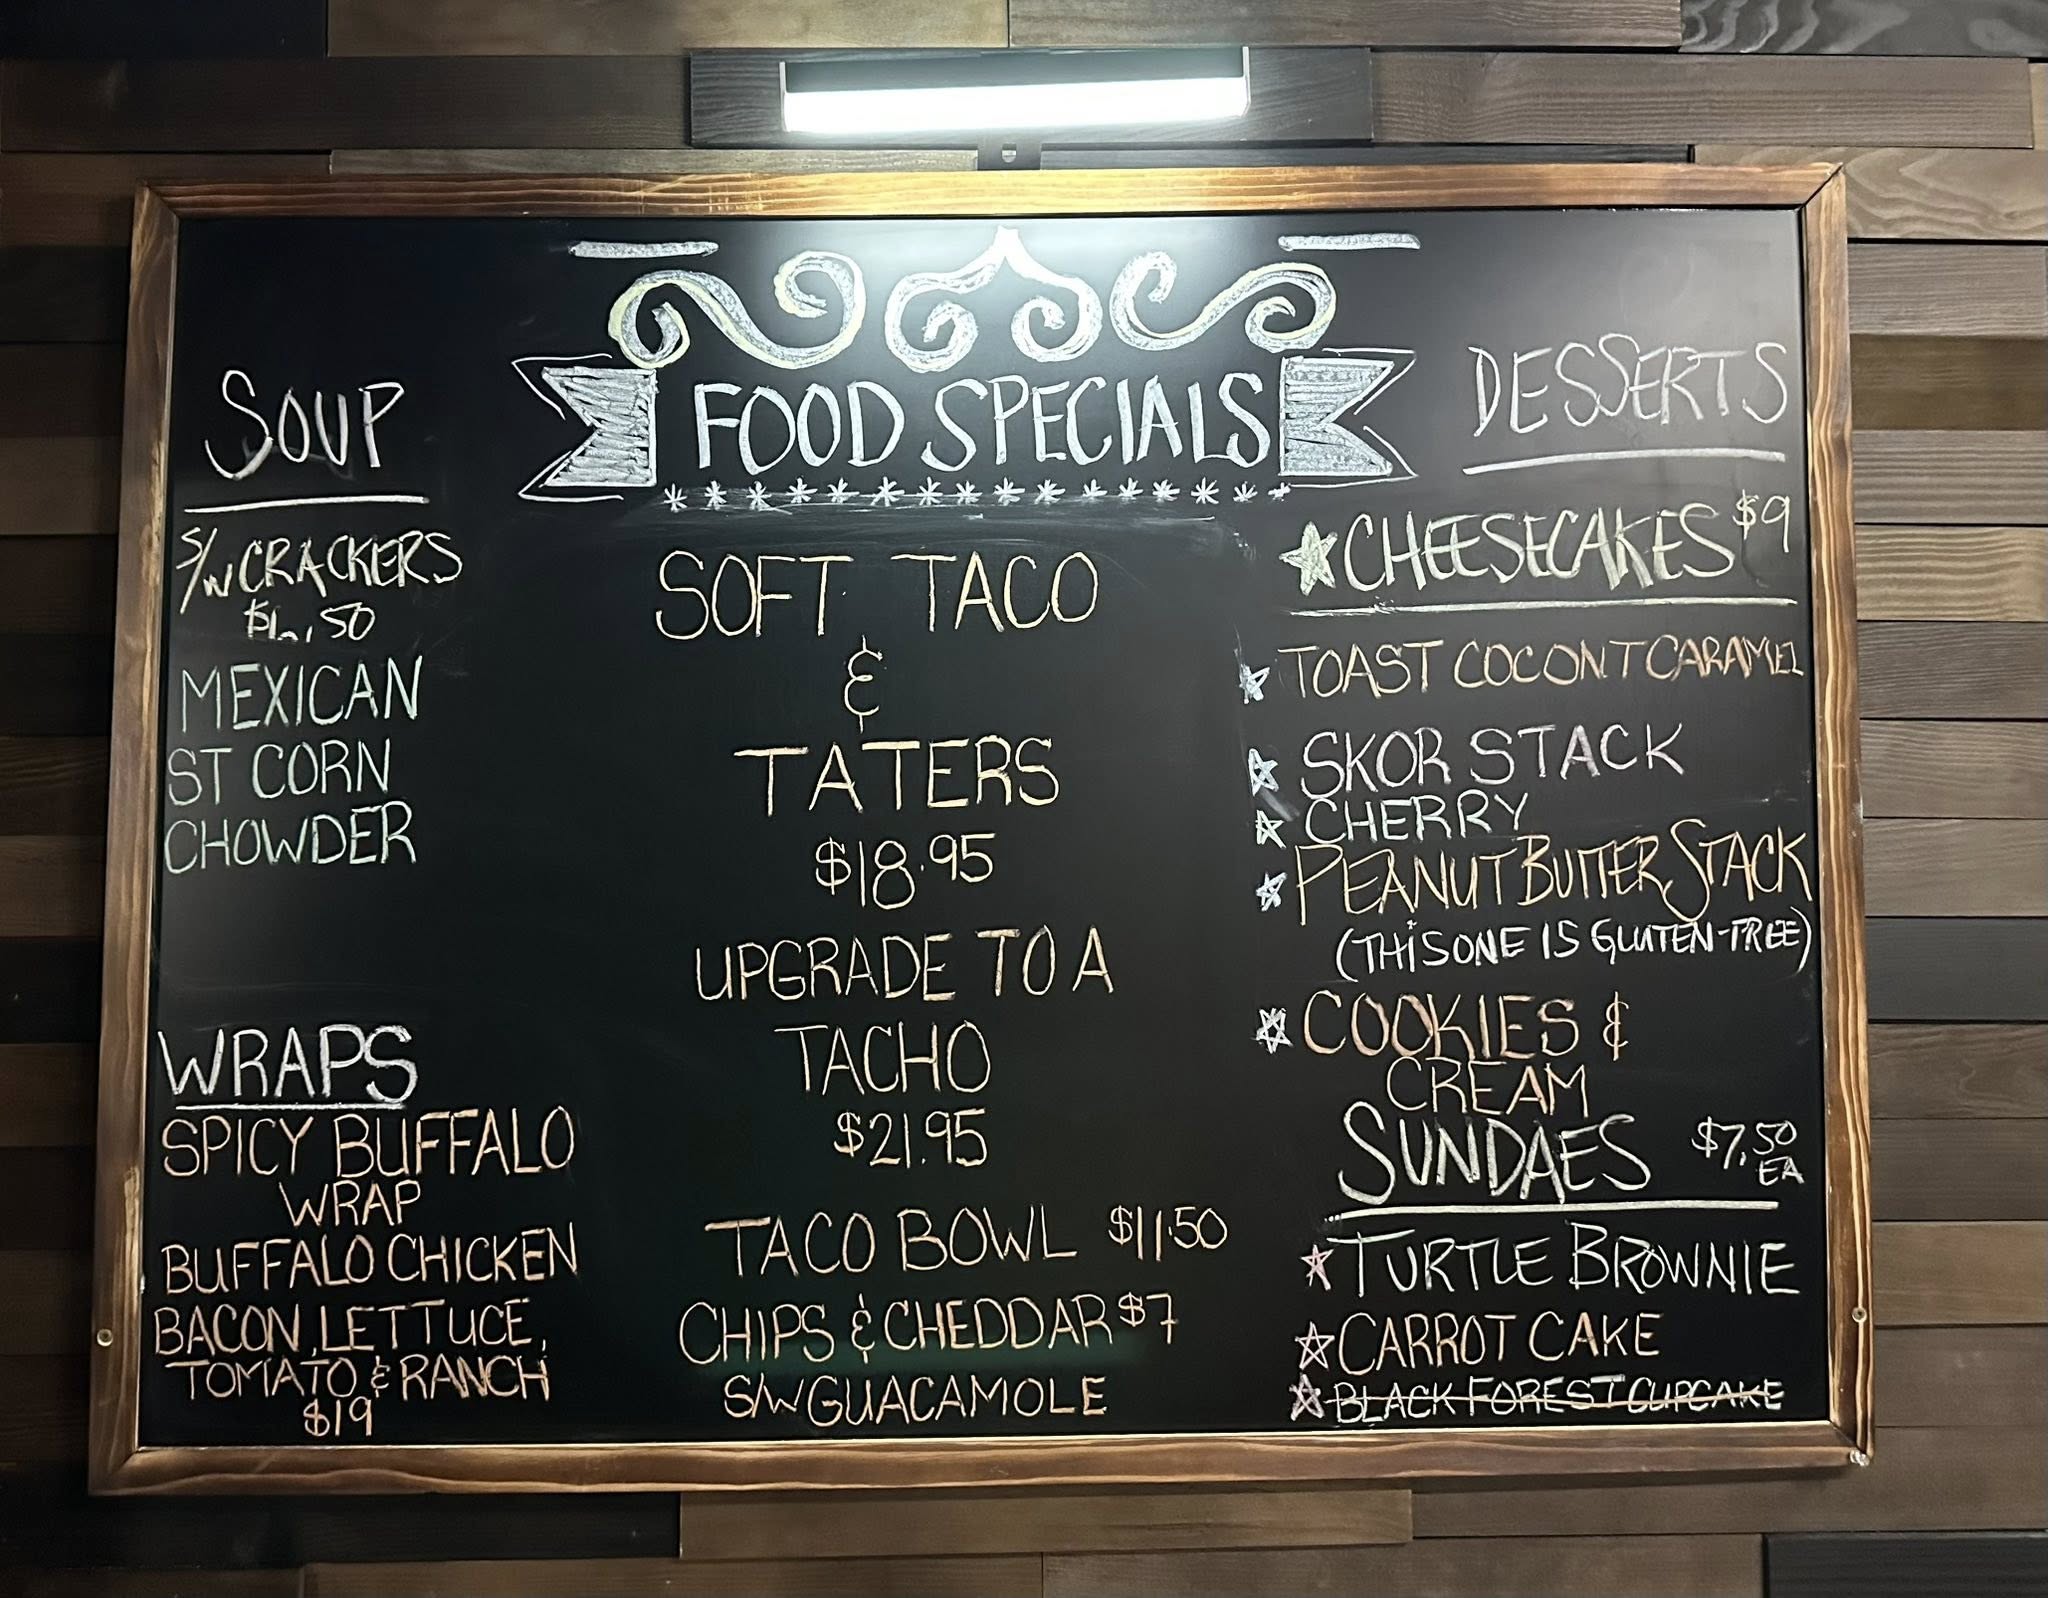 FOOD SPECIALS
SOUP
S/W CRACKERS
$6.50
MEXICAN
ST CORN
CHOWDER
WRAPS
SPICY BUFFALO
WRAP
BUFFALO CHICKEN
BACON, LETTUCE,
TOMATO & RANCH
$19
SOFT TACO
&
TATERS
$18.95
UPGRADE TO A
TACHO
$21.95
TACO BOWL $11.50
CHIPS & CHEDDAR $7
S/W GUACAMOLE
DESSERTS
CHEESECAKES $9
TOAST COCONT CARAMEL
SKOR STACK
CHERRY
PEANUT BUTTER STACK
(THIS ONE IS GLUTEN-FREE)
COOKIES &
CREAM
SUNDAES $7.50
EA
TURTLE BROWNIE
CARROT CAKE
BLACK FOREST CUPCAKE